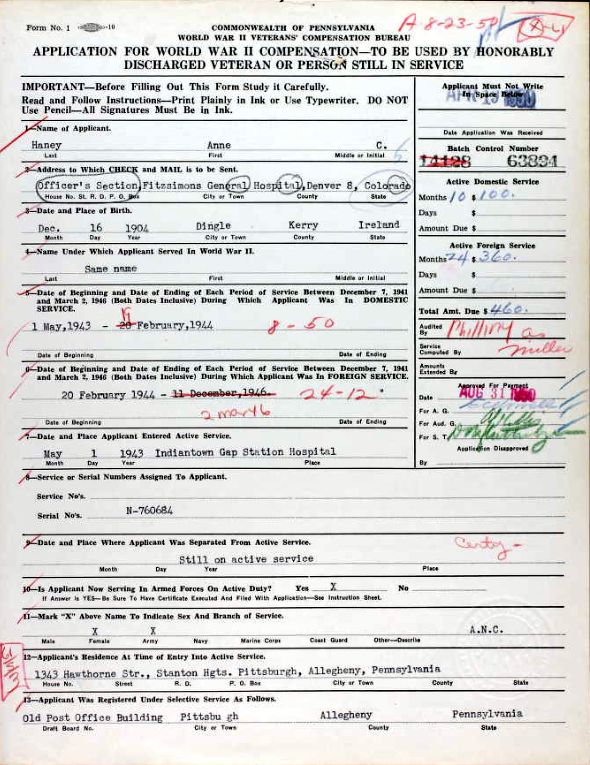 Form No. 1
COMMONWEALTH OF PENNSYLVANIA
WORLD WAR II VETERANS' COMPENSATION BUREAU
A-8-23-50
APPLICATION FOR WORLD WAR II COMPENSATION—TO BE USED BY HONORABLY
DISCHARGED VETERAN OR PERSON STILL IN SERVICE
IMPORTANT—Before Filling Out This Form Study it Carefully.
Read and Follow Instructions—Print Plainly in Ink or Use Typewriter. DO NOT
Use Pencil—All Signatures Must Be in Ink.
Applicant Must Not Write
In Space Below
APR 19 1950
Date Application Was Received
1—Name of Applicant.
Haney Anne C.
Last First Middle or Initial
Batch Control Number
14128 63834
2—Address to Which CHECK and MAIL is to be Sent.
Officer's Section, Fitzsimons General Hospital, Denver 8, Colorado
House No. St. R. D. P. O. Box City or Town County State
Active Domestic Service
Months 10 $ 100.
Days $
Amount Due $
3—Date and Place of Birth.
Dec. 16 1904 Dingle Kerry Ireland
Month Day Year City or Town County State
Active Foreign Service
Months 24 $ 360.
Days $
Amount Due $
4—Name Under Which Applicant Served In World War II.
Same name
Last First Middle or Initial
Total Amt. Due $ 460.
5—Date of Beginning and Date of Ending of Each Period of Service Between December 7, 1941
and March 2, 1946 (Both Dates Inclusive) During Which Applicant Was In DOMESTIC
SERVICE.
1 May, 1943 - 20 February, 1944 8-50
Date of Beginning Date of Ending
Audited By
Service Computed By Miller
Amounts Extended By
6—Date of Beginning and Date of Ending of Each Period of Service Between December 7, 1941
and March 2, 1946 (Both Dates Inclusive) During Which Applicant Was In FOREIGN SERVICE.
20 February 1944 - 11 December, 1946. 24-12
2 mar 46
Date of Beginning Date of Ending
Approved For Payment
Date AUG 31 1950
For A. G.
For Aud. G.
For S. T.
Application Disapproved
By
7—Date and Place Applicant Entered Active Service.
May 1 1943 Indiantown Gap Station Hospital
Month Day Year Place
8—Service or Serial Numbers Assigned To Applicant.
Service No's.
Serial No's. N-760684
9—Date and Place Where Applicant Was Separated From Active Service.
Still on active service
Month Day Year Place
10—Is Applicant Now Serving In Armed Forces On Active Duty? Yes X No
If Answer is YES—Be Sure To Have Certificate Executed And Filed With Application—See Instruction Sheet.
11—Mark "X" Above Name To Indicate Sex And Branch of Service.
X X A.N.C.
Male Female Army Navy Marine Corps Coast Guard Other—Describe
12—Applicant's Residence At Time of Entry Into Active Service.
1343 Hawthorne Str., Stanton Hgts. Pittsburgh, Allegheny, Pennsylvania
House No. Street R. D. P. O. Box City or Town County State
13—Applicant Was Registered Under Selective Service As Follows.
Old Post Office Building Pittsbu gh Allegheny Pennsylvania
Draft Board No. City or Town County State